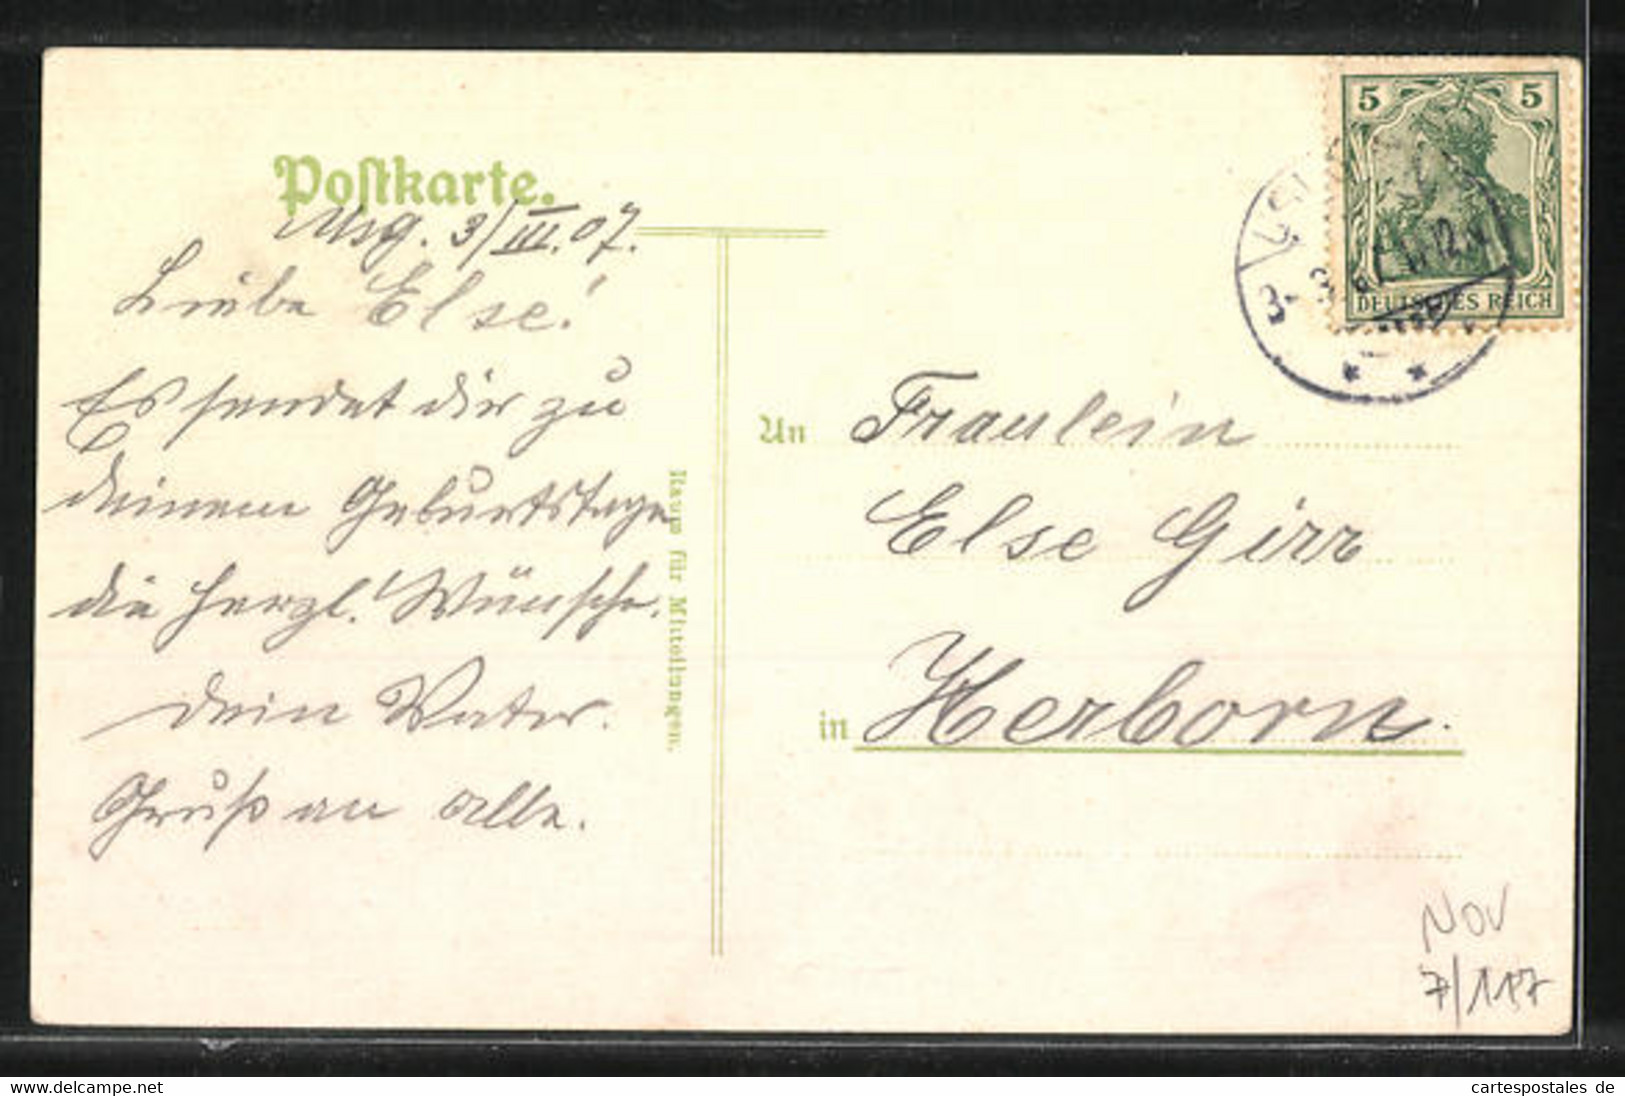 Postkarte.
Usg. 3/III.07.
Liebe Else!
Es sendet dir zu
deinem Geburtstage
die herzl. Wünsche.
dein Vater.
Gruß an alle.
Raum für Mitteilungen.
5 5
DEUTSCHES REICH
An Fraulein
Else Girr
in Herborn.
NOV
7/117
www.delcampe.net
cartespostales de